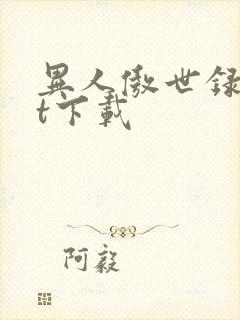 異人傲世録
t下載
阿毅